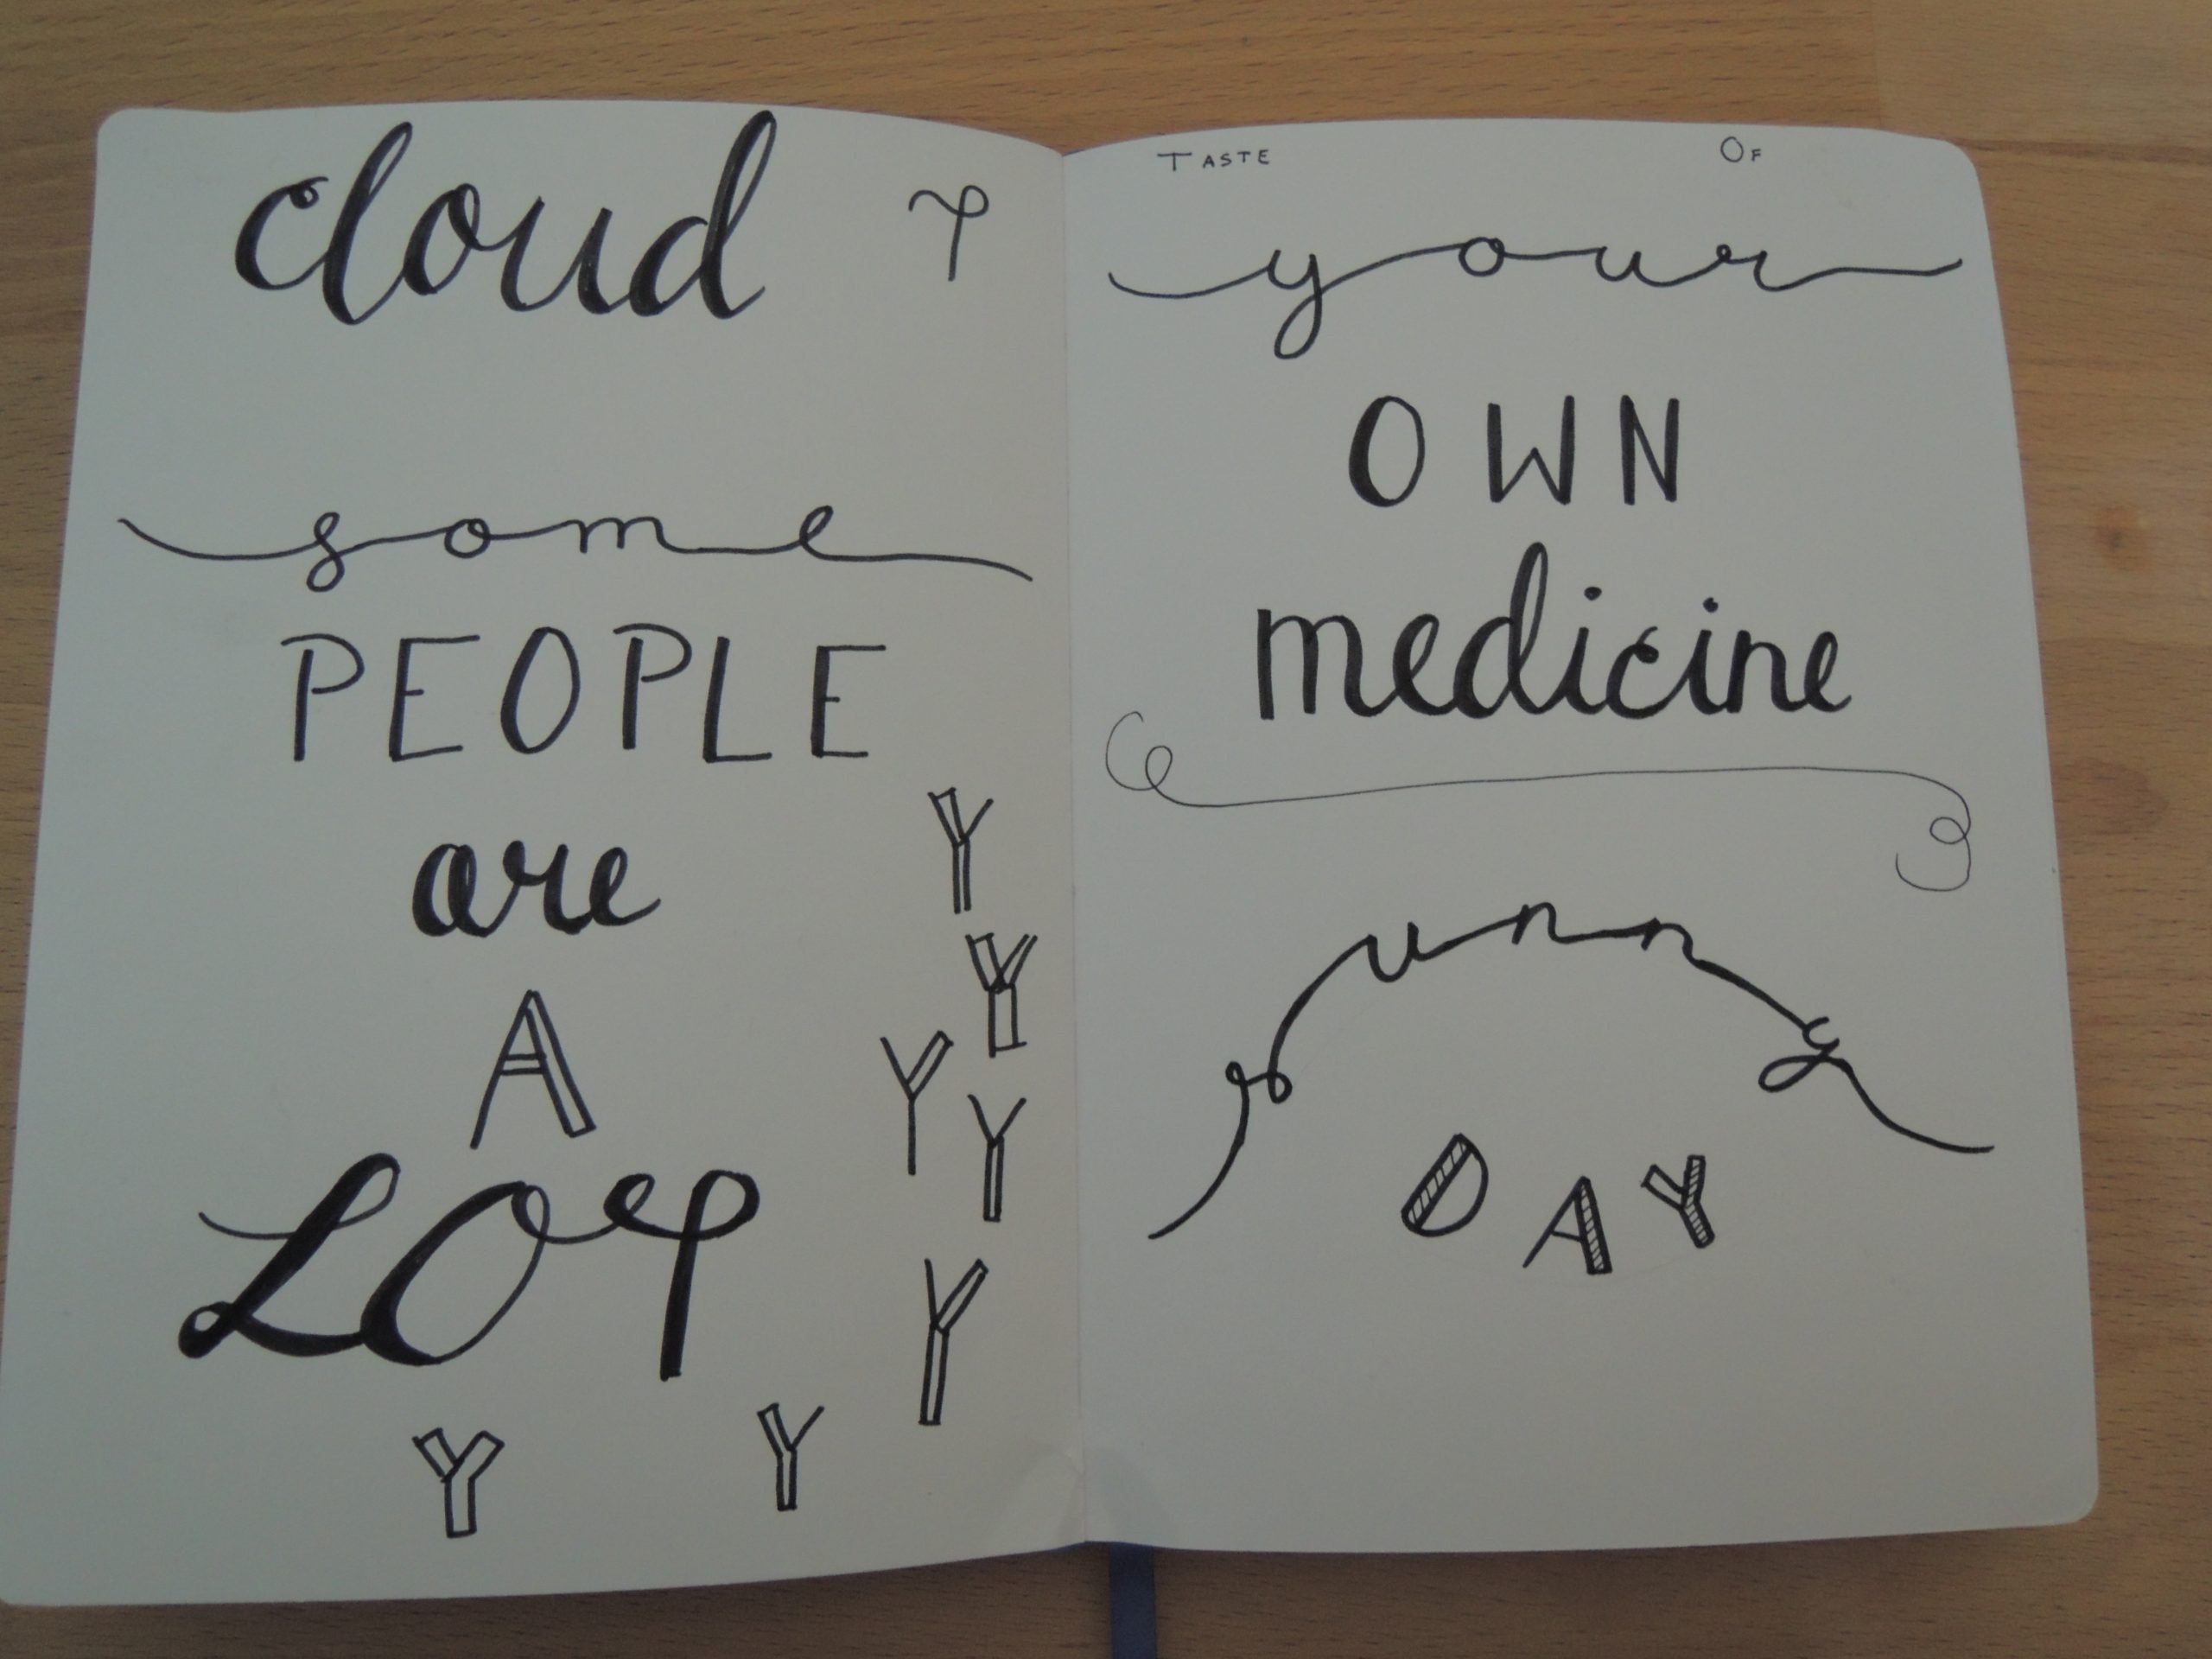 cloud T
some
PEOPLE
are
A
LOT
Y
Y
Y
Y
Y
Y Y
TASTE OF
your
OWN
medicine
sunny
DAY